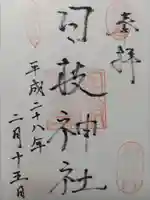 奉拝
日枝神社
平成二十八年
二月十五日